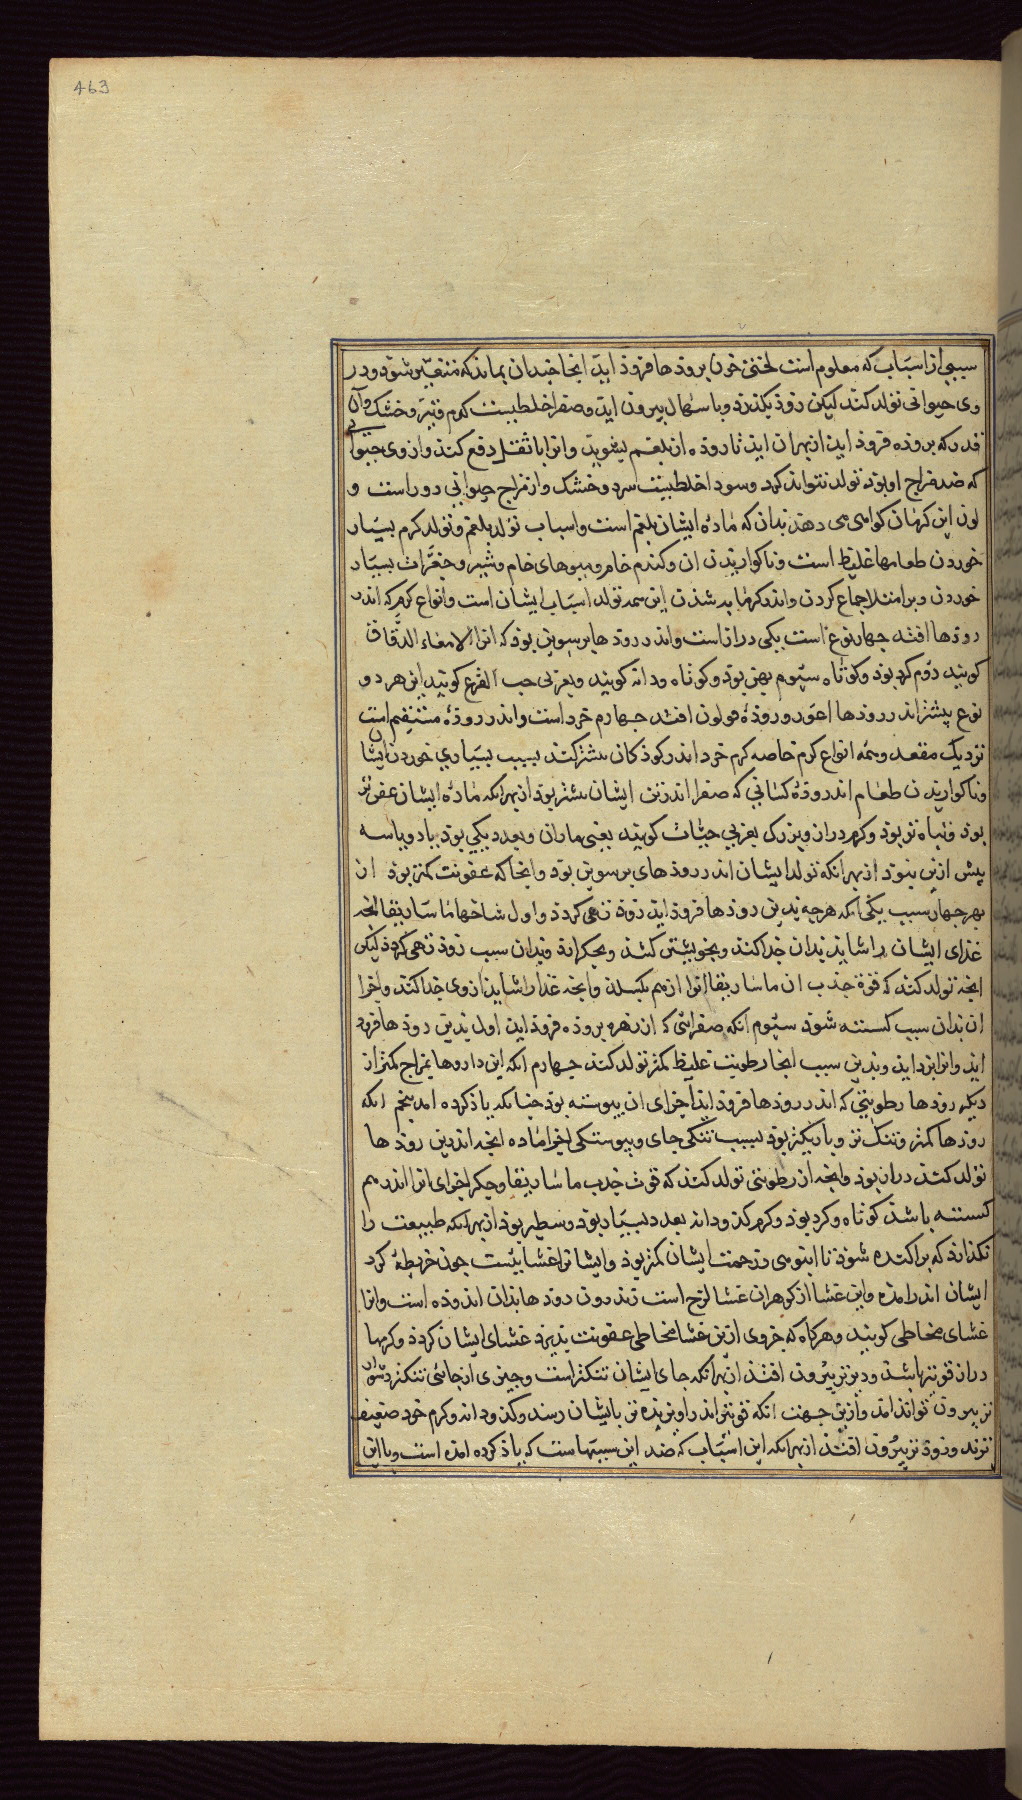 463
سببی از اسباب که معلوم است لختی خون برودها فروذ اید انجا چندان بماند که متغیر شوذ و در
وی حیوانی تولد کند لیکن زوذ بکذرد و باسهال بیرون اید و صفرا خلطیست کرم و تیز و خشک و آن
قدر که بروده فروذ اید از بهران اید تا روده از بلغم بشوید و انرا با ثفل دفع کند و از وی حیوانی
که ضد مزاج او بوذ تولد نتواند کرد و سودا خلطیست سرد و خشک و از مزاج حیوانی دور است و
لون این کرمان کواهی می دهد بدان که ماده ایشان بلغم است و اسباب تولد بلغم و تولد کرم بسیار
خوردن طعامها غلیظ است و ناکواریدن ان و کندم خام و میوهای خام و شیر و جغرات بسیار
خوردن و بر امتلا جماع کردن و اندر کرمابه شذن این همه تولد اسباب ایشان است و انواع کرم که اندر
روذها افتد چهار نوع است یکی دراز است و اندر روذها برسوین بوذ که انرا الامعاء الدقاق
کویند دوم کرد بوذ و کوتاه سیوم پهن بوذ و کوتاه و دانه کویند و بعربی حب القرع کویند این هر دو
نوع بیشتر اندر روذها اعور و روذهٔ قولون افتد چهارم خرد است و اندر رودهٔ مستقیم است
نزدیک مقعد و همه انواع کرم خاصه کرم خرد اندر کوذکان بیشتر کند بسبب بسیاری خوردن ایشان
و ناکواریدن طعام اندر رودهٔ کسانی که صفرا اندر تن ایشان بیشتر بوذ از بهر انکه مادهٔ ایشان عفن تر
بوذ و تباه تر بوذ و کرم دراز و بزرک بعربی حیات کویند یعنی ماران و بعدد یکی بوذ یا دو یا سه
بیش ازین نبوذ از بهر انکه تولد ایشان اندر روذهای برسوین بوذ و انجا که عفونت کمتر بوذ از
بهر چهار سبب یکی انکه هرچه بدین روذها فروذ اید زوذ تهی کردذ و اول شاخها ماساریقا انچه
غذای ایشان را شاید بدان جدا کند و بخویشتن کشد و بجکر ارد و بدان سبب زوذ تهی کردذ لیکن
انچه تولد کند که قوة جذب ان ماساریقا انرا از هم بکسلد و انچه غذا را شاید از وی جدا کند و اجزا
ان بدان سبب کسسته شوذ سیوم انکه صفرائی که از زهره بروده فروذ اید اول بدین روذها فروذ
اید و انرا بزداید و بدین سبب انجا رطوبت غلیظ کمتر تولد کند چهارم انکه این داروها بمزاج کمتر از
دیکر روذها رطوبتی که اندر روذها فروذ اید اجزای ان پیوسته بوذ چنانکه یاذ کرده امد پنجم انکه
روذها کمتر و تنک تر و باریکتر بوذ بسبب تنکی جای و پیوستکی اجزا ماده انچه اندرین روذها
تولد کند دراز بوذ و انچه از رطوبتی تولد کند که قوت جذب ماساریقا و جکر اجزای انرا اندر هم
کسسته باشذ کوتاه و کرد بوذ و کرم کذودانه بعدد بسیار بوذ و سطبر بوذ از بهر انکه طبیعت را
نکذارذ که پراکنده شوذ تا انبوهی و زحمت ایشان کمتر بوذ و ایشانرا غشاییست چون خریطهٔ کرد
ایشان اندر امده و این غشا از کوهر ان غشا لزج است که اندرون روذها بذان اندوذه است و انرا
غشای مخاطی کویند و هرکاه که جزوی ازین غشا مخاطی عفونت پذیرد غشای ایشان کردذ و کرمها
دراز قویتر باشد و دیرتر بیرون افتد از بهر انکه جای ایشان تنکتر است و چیزی از جائی تنکتر دشوار
تر بیرون تواند امد و ازین جهت انکه قویتر اند دارو بزیده تر بایشان رسد و کذودانه و کرم خرد ضعیف
ترند و زوذ تر بیرون افتد از بهر انکه این اسباب که ضد این سببهاست که یاذ کرده امده است و با این